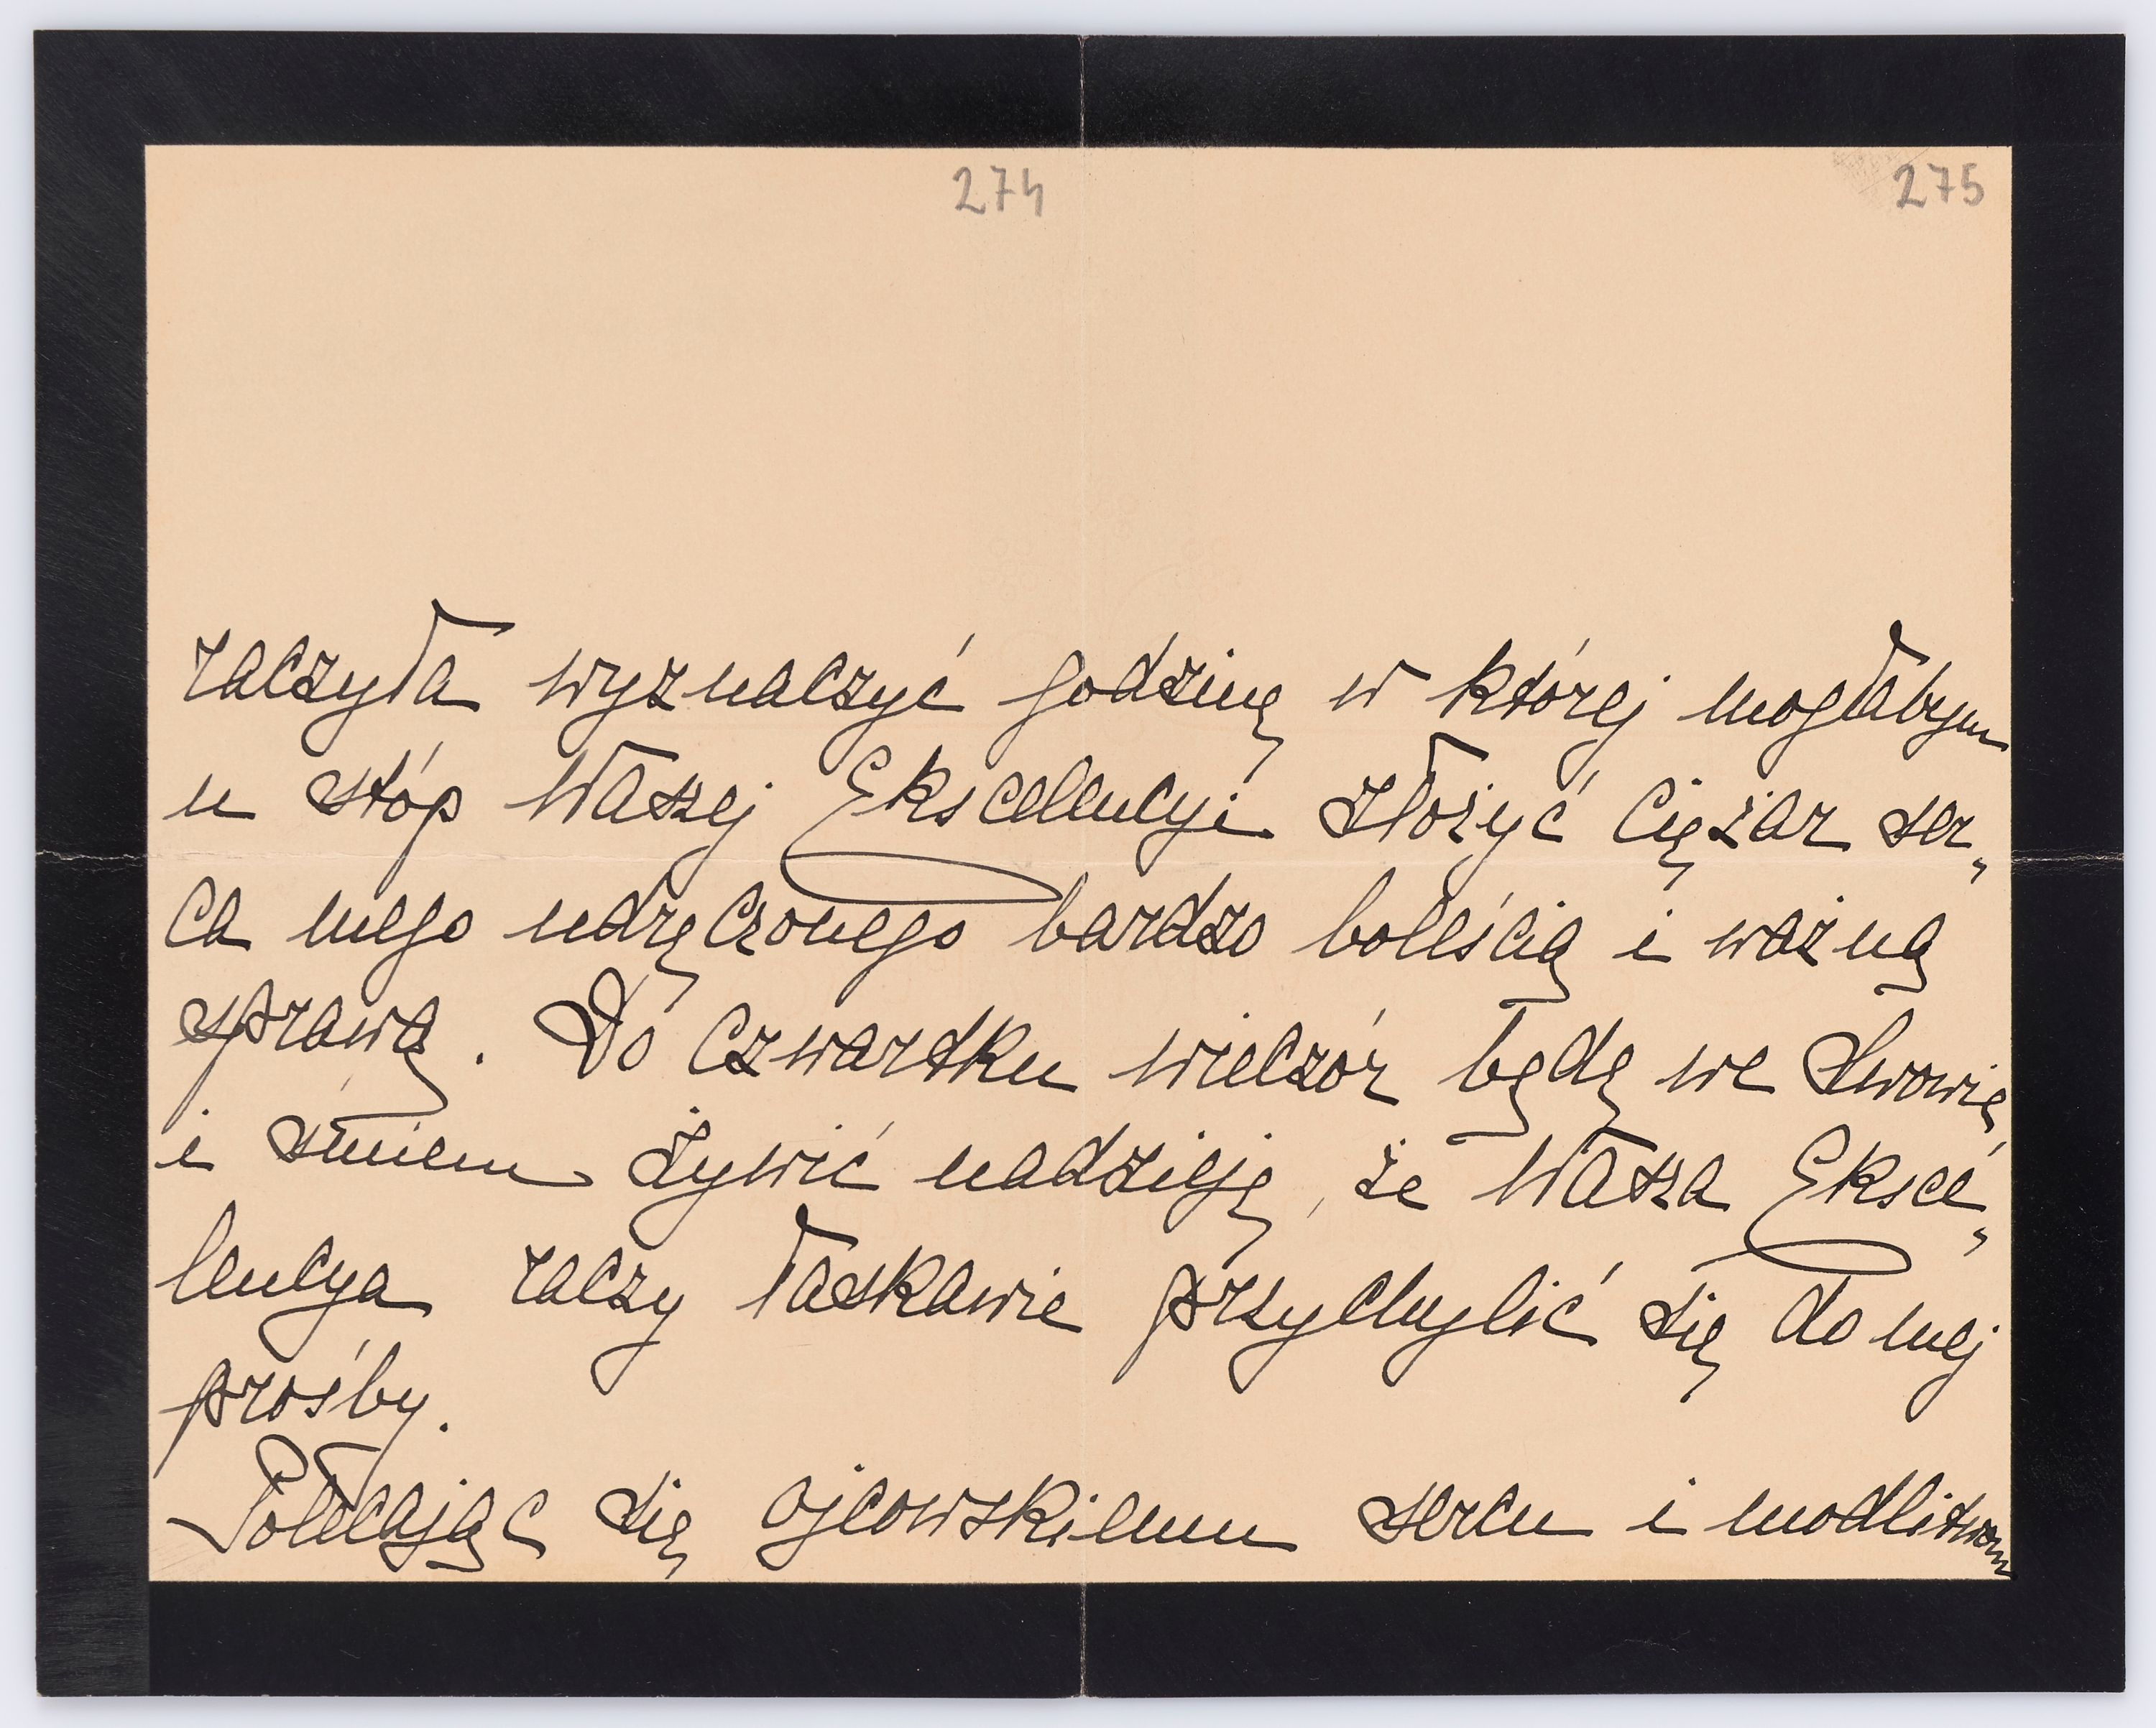 274
275
raczyła wyznaczyć godzinę w której mogłabym
u stóp Waszej Ekscellencyi złożyć ciężar ser„
ca mego udręczonego bardzo boleścią i ważną
sprawą. Do czwartku wieczór będę we Lwowie
i śmiem żywić nadzieję, że Wasza Eksce„
lencya raczy łaskawie przychylić się do mej
prośby.
Polecając się ojcowskiemu sercu i modlitwom